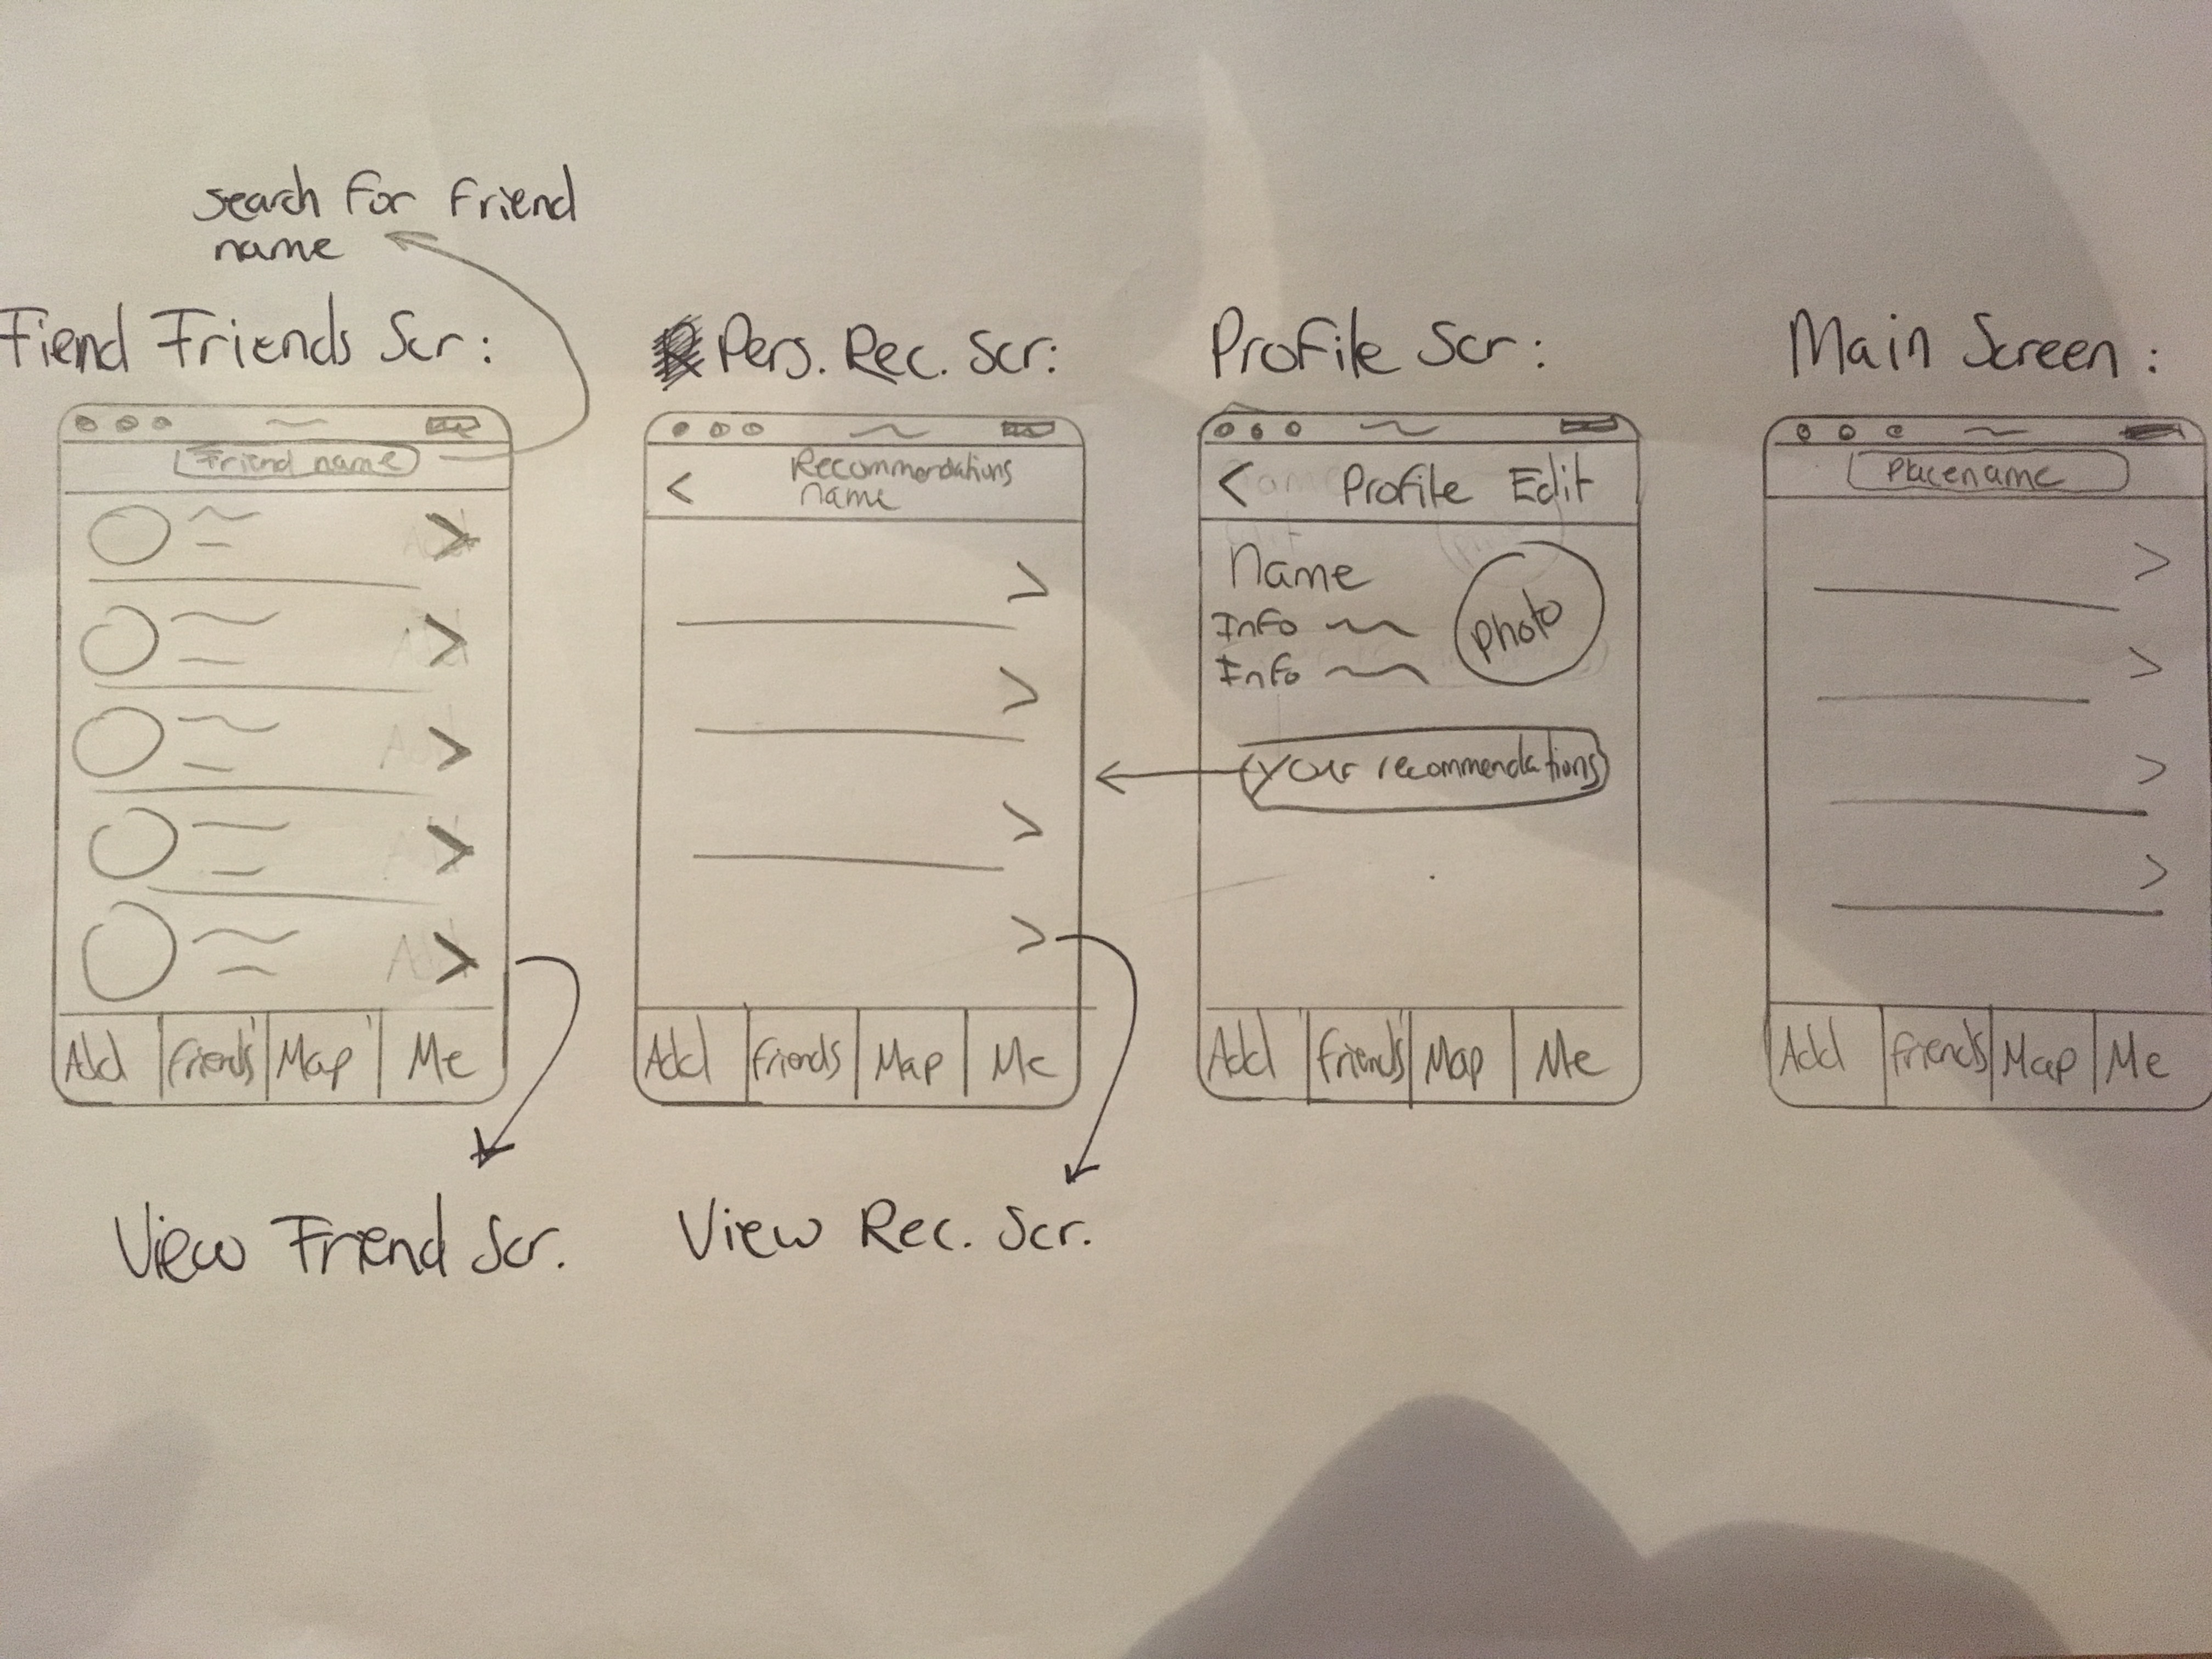 search for friend
name
Fiend Friends Scr:
Friend name
Add
Friends
Map
Me
View Friend Scr.
Pers. Rec. Scr:
Recommendations
name
Add
Friends
Map
Me
View Rec. Scr.
Profile Scr:
Profile Edit
Name
Info
Info
Photo
Your recommendations
Add
Friends
Map
Me
Main Screen:
Placename
Add
Friends
Map
Me